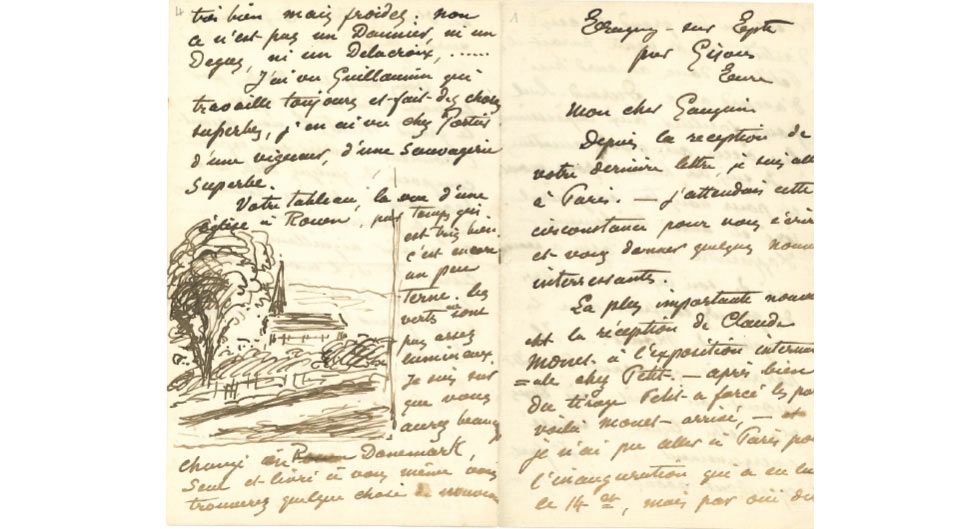 4
très bien mais froides. non
ce n'est pas un Daumier, ni un
Degas, ni un Delacroix, .....
J'ai vu Guillaumin qui
travaille toujours et fait des choses
superbes, j'en ai vu chez Portier
d'une vigueur, d'une sauvagerie
superbe.
Votre tableau, la vue d'une
église à Rouen, par temps gris.
est très bien.
c'est encore
un peu
terne. les
verts ne sont
pas assez
lumineux.
Je suis sur
que vous
aurez beauc
changé en Danemark,
seul et livré à vous même vous
trouverez quelque chose de nouveau
1
Eragny-sur Epte
par Gisors
Eure
Mon cher Gauguin
Depuis la reception de
votre dernière lettre, je suis all
à Paris. — j'attendais cette
circonstance pour vous écrir
et vous donner quelques nouv
interressantes.
La plus importante nouve
est la réception de Claude
Monet à l'exposition interna
=ale chez Petit. — après bien
du tirage Petit a forcé les po
voilà Monet arrivé, — et
je n'ai pu aller à Paris po
l'inauguration qui a eu lie
le 14 ct, mais par oui di